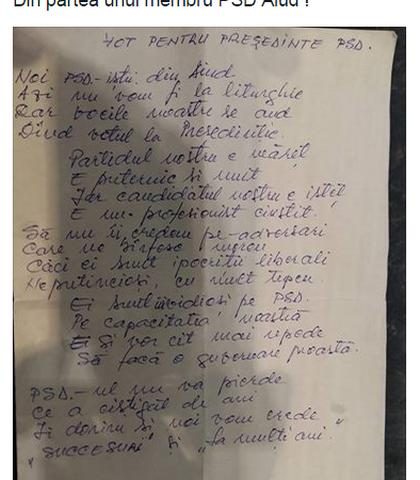 Din partea unui membru PSD Aiud !
VOT PENTRU PREȘEDINTE PSD.
Noi PSD-iștii din Aiud
Azi nu vom fi la liturghie
Dar vocile noastre se aud
Dînd votul la Președinție.
Partidul nostru e măreț
E puternic și unit
Iar candidatul nostru e isteț
E un profesionist cinstit.
Să nu îi credem pe adversari
Care ne bîrfesc mereu
Căci ei sunt ipocriții liberali
Neputincioși, cu mult tupeu.
Ei sunt invidioși pe PSD.
Pe capacitatea noastră
Ei și vor cît mai repede
Să facă o guvernare proastă.
PSD-ul nu va pierde
Ce a cîștigat de ani
Îi dorim și noi vom crede
"SUCCESURI" și "La mulți ani."